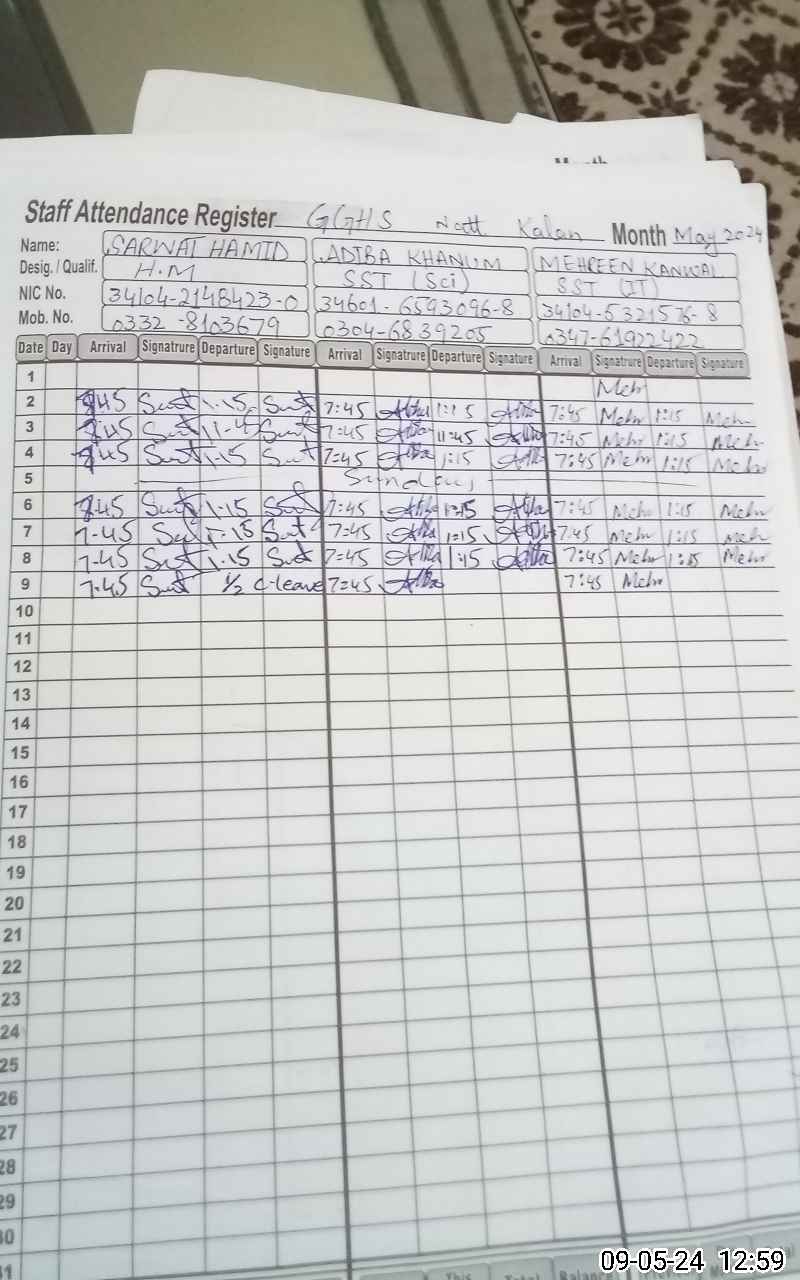 Month
Staff Attendance Register GGHS Nott Kalan Month May 2024
Name: SARWAT HAMID ADIBA KHANUM MEHREEN KANWAL
Desig. / Qualif. H.M SST (Sci) SST (IT)
NIC No. 34104-2148423-0 34601-6593096-8 34104-5321576-8
Mob. No. 0332-8103679 0304-6839205 0347-61922422
Date Day Arrival Signatrure Departure Signature Arrival Signatrure Departure Signature Arrival Signatrure Departure Signature
1 Mehr
2 1.15 7:45 Adiba 1:15 Adiba 7:45 Mehr 1:15 Mehr
3 7:45 Adiba 11:45 Adiba 7:45 Mehr 1:15 Mehr
4 1.15 7:45 Adiba 1:15 Adiba 7:45 Mehr 1:15 Mehr
5 Sunday
6 1.15 7:45 Adiba 1:15 Adiba 7:45 Mehr 1:15 Mehr
7 7-45 1.15 7:45 Adiba 1:15 Adiba 7:45 Mehr 1:15 Mehr
8 7-45 1.15 7:45 Adiba 1:15 Adiba 7:45 Mehr 1:15 Mehr
9 7-45 1/2 C-leave 7:45 Adiba 7:45 Mehr
10
11
12
13
14
15
16
17
18
19
20
21
22
23
24
25
26
27
28
29
30
31
This Total
09-05-24 12:59